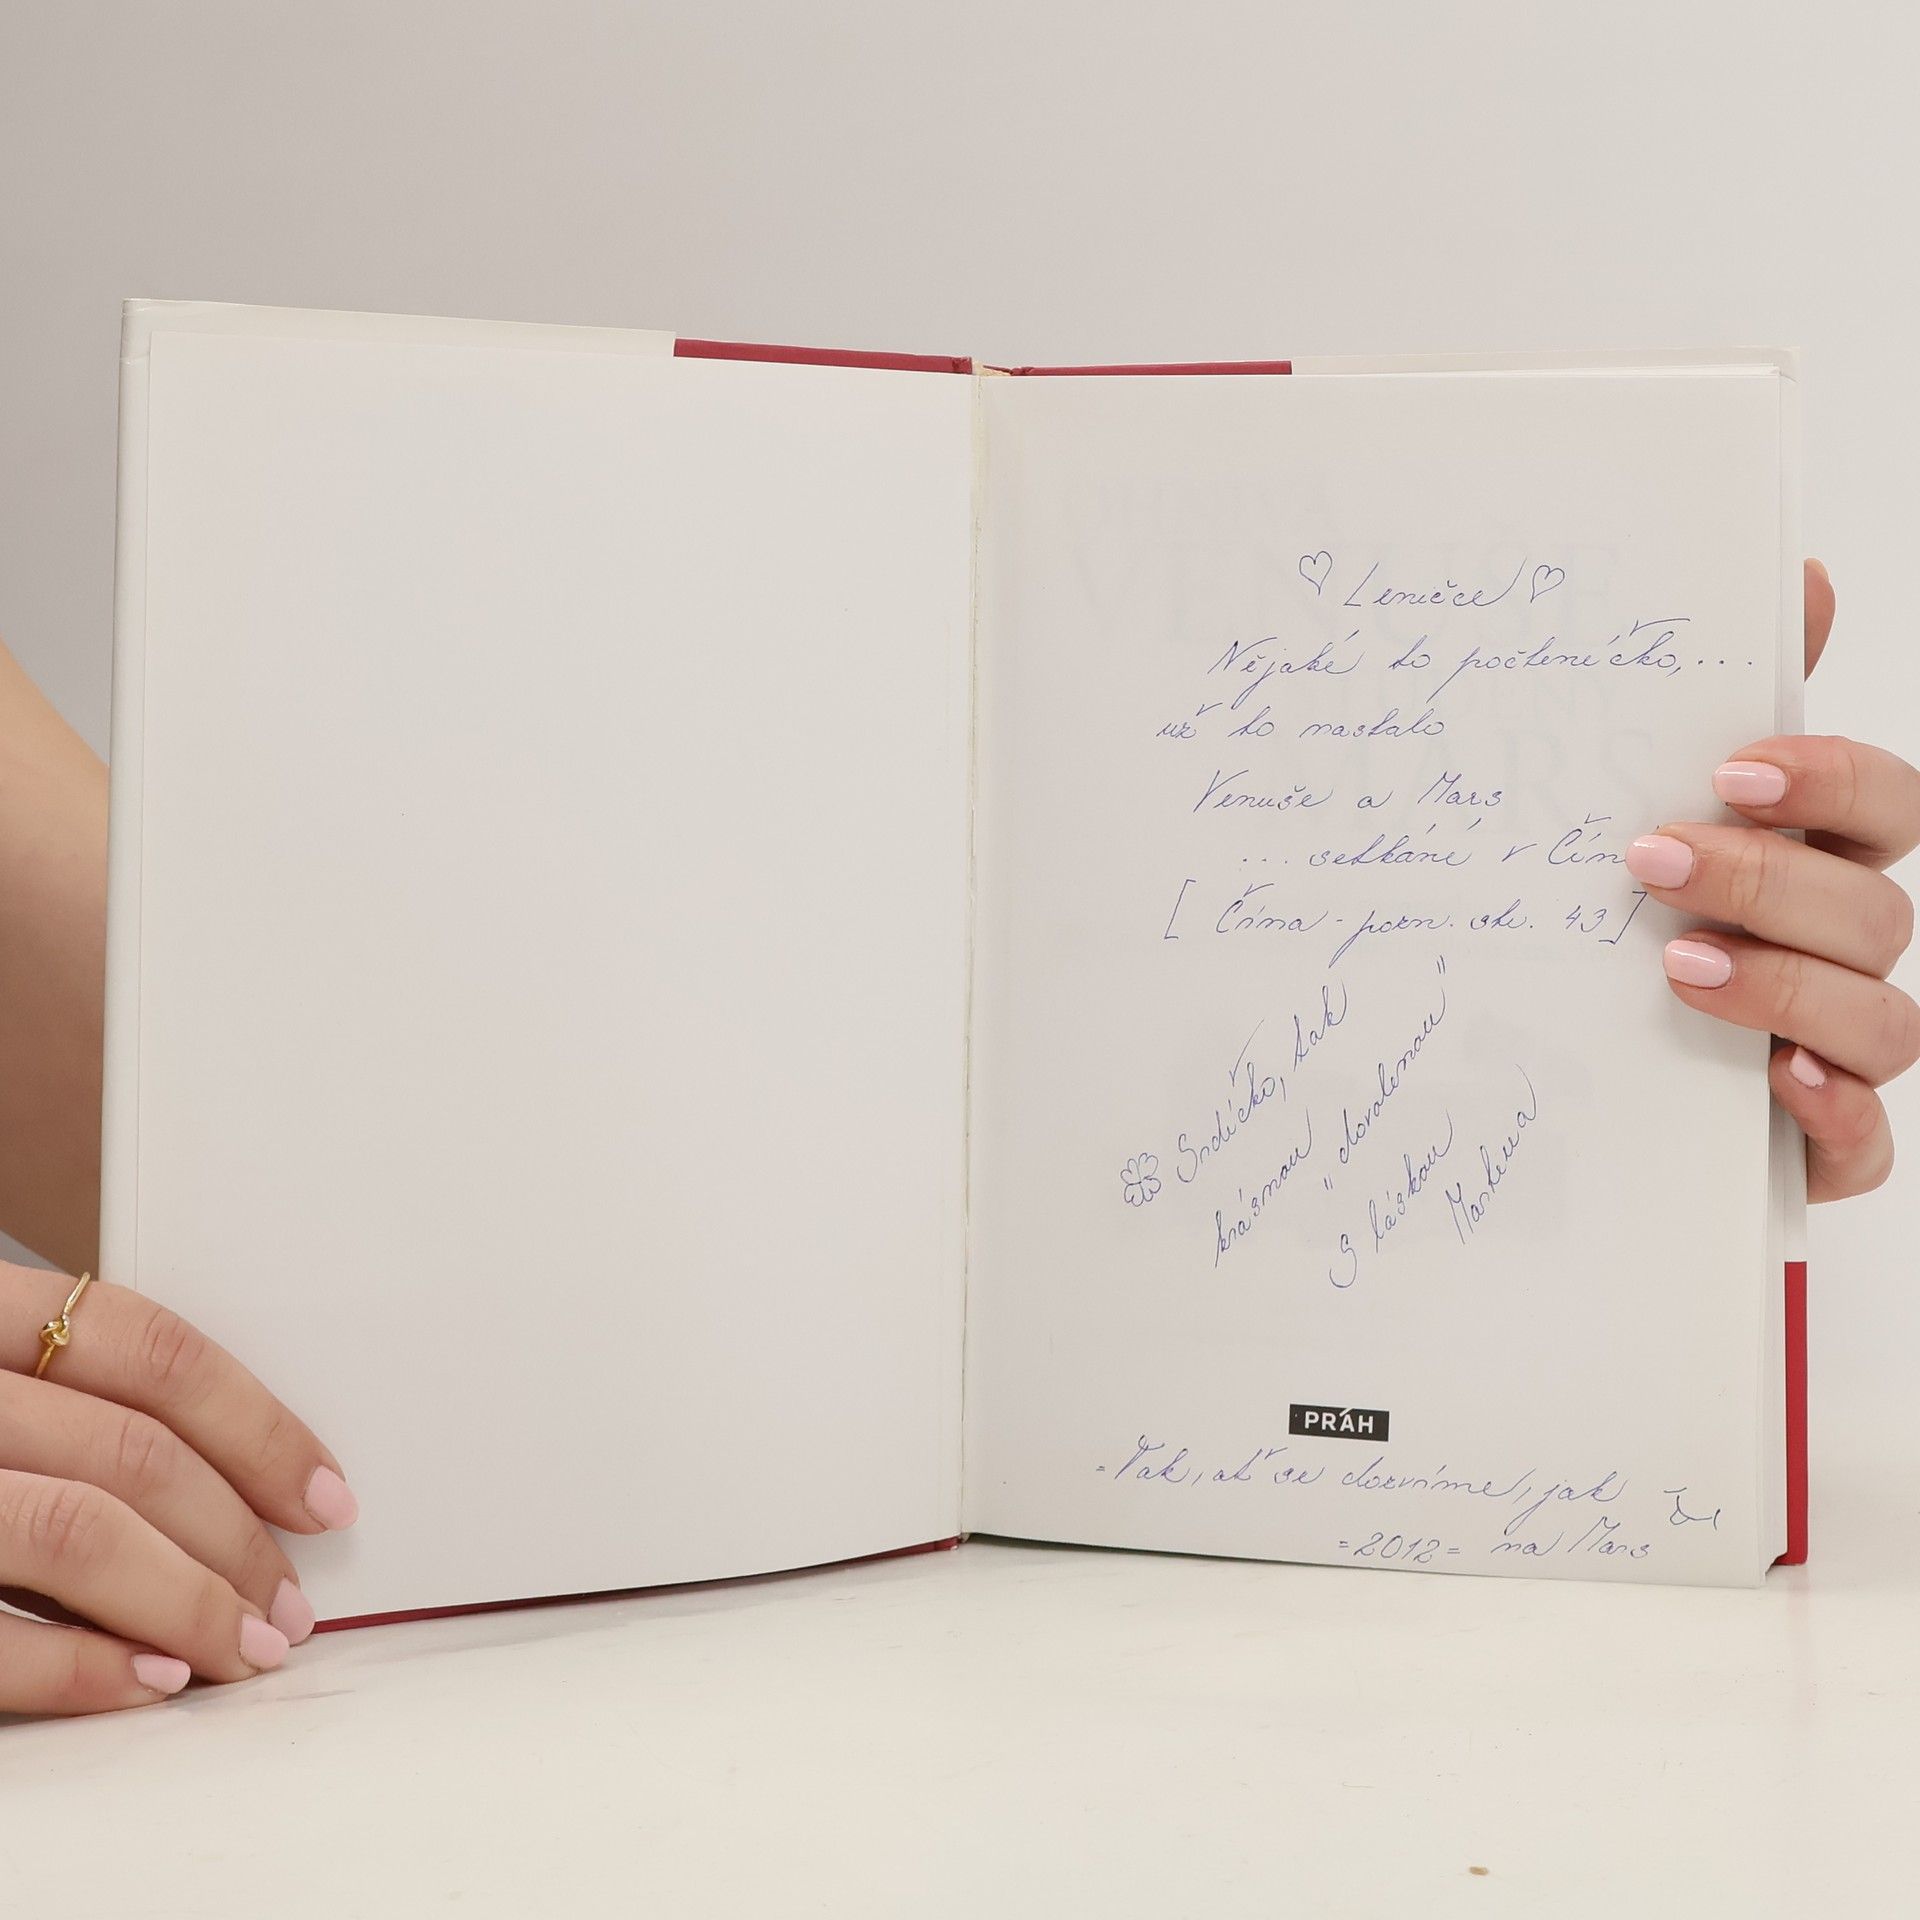 Leničce
Nějaké to počteníčko, ...
už to nastalo
Venuše a Mars
... setkání v Čín
[ Čína - pozn. str. 43 ]
Srdíčko, tak
krásnou "dovolenou"
S láskou
Martina
PRÁH
=Tak, ať se dozvíme, jak
=2012= na Mars